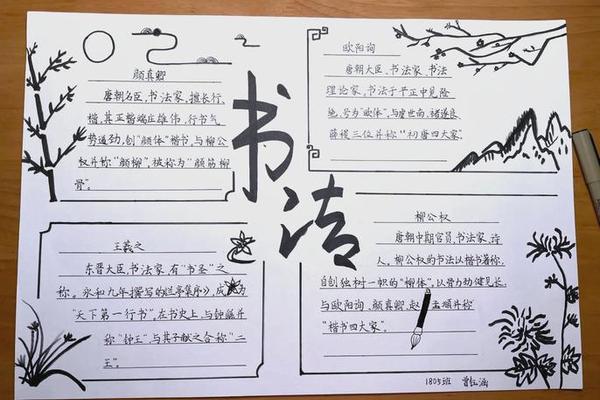 书法
颜真卿
唐朝名臣,书法家,擅长行、
楷,其正楷端庄雄伟,行书气
势遒劲,创“颜体”楷书,与柳公
权并称“颜柳”,被称为“颜筋柳
骨”。
欧阳询
唐朝大臣、书法家、书法
理论家,书法于平正中见险
绝,号为“欧体”,与虞世南、褚遂良
薛稷三位并称“初唐四大家”
王羲之
东晋大臣、书法家有“书圣”之
称。永和九年撰写的《兰亭集序》,成为
“天下第一行书”,在书史上,与钟繇并
称“钟王”与其子献之合称“二
王”。
柳公权
唐朝中期官员、书法家、诗
人。柳公权的书法以楷书著称,
自创独树一帜的“柳体”,以骨力劲健见长,
与欧阳询、颜真卿、赵孟頫并称
“楷书四大家”。
1805班